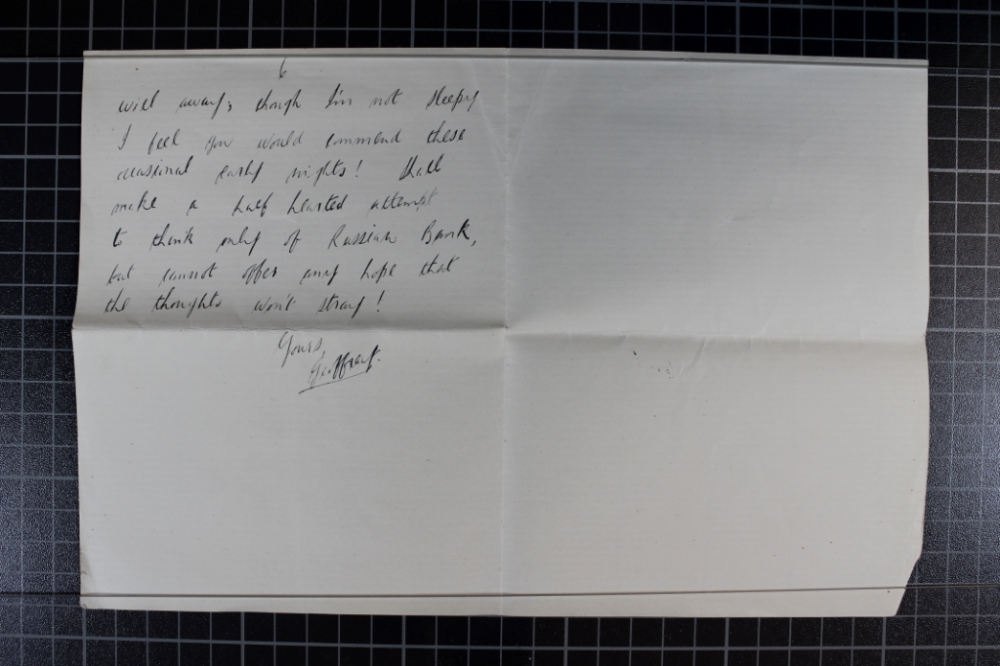 6
will away; though I'm not sleepy
I feel you would commend these
occasional early nights! Shall
make a half hearted attempt
to think only of Russian Bank,
but cannot offer any hope that
the thoughts won't stray!
Yours,
Geoffrey.